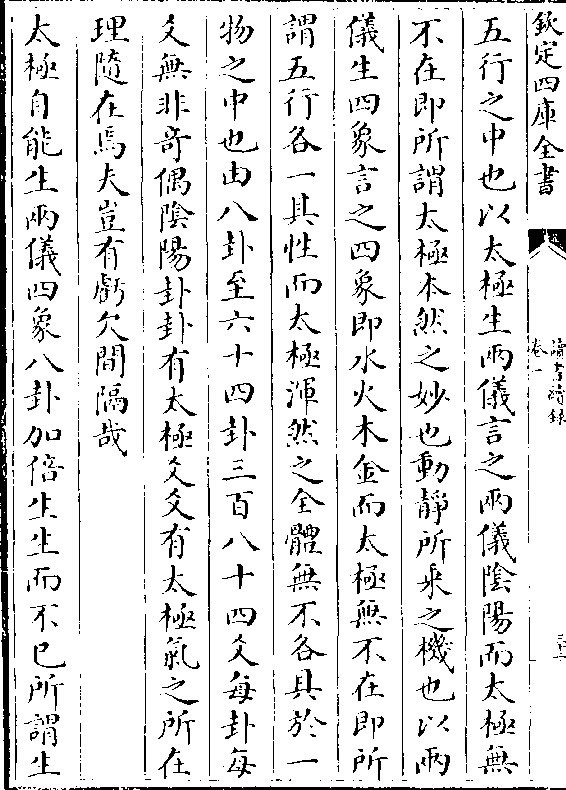 欽定四庫全書
讀書續錄
卷一
五行之中也以太極生兩儀言之兩儀陰陽而太極無
不在即所謂太極本然之妙也動靜所乗之機也以兩
儀生四象言之四象即水火木金而太極無不在即所
謂五行各一具性而太極渾然之全體無不各具於一
物之中也由八卦至六十四卦三百八十四爻每卦每
爻無非竒偶陰陽卦卦有太極爻爻有太極氣之所在
理隨在焉夫豈有虧欠間隔哉
太極自能生兩儀四象八卦加倍生生而不已所謂生